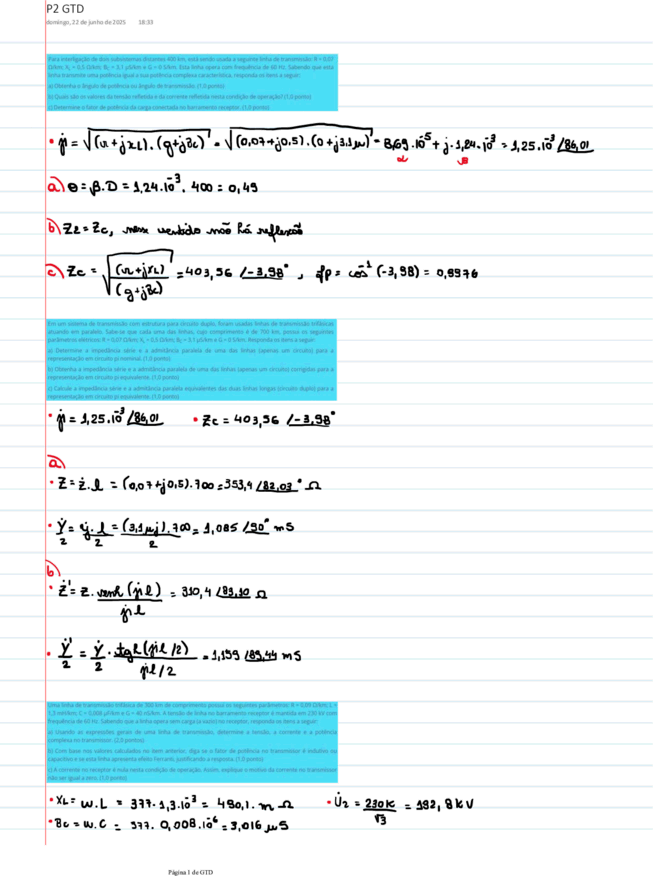 P2 GTD
domingo, 22 de junho de 2025 18:33
Para interligação de dois subsistemas distantes 400 km, está sendo usada a seguinte linha de transmissão: R = 0,07
Ω/km; XL = 0,5 Ω/km; BC = 3,1 μS/km e G = 0 S/km. Esta linha opera com frequência de 60 Hz. Sabendo que esta
linha transmite uma potência igual a sua potência complexa característica, responda os itens a seguir:
a) Obtenha o ângulo de potência ou ângulo de transmissão. (1,0 ponto)
b) Quais são os valores da tensão refletida e da corrente refletida nesta condição de operação? (1,0 ponto)
c) Determine o fator de potência da carga conectada no barramento receptor. (1,0 ponto)
• γ̇ = √((r+jxL).(g+jBc)) = √((0,07+j0,5).(0+j3,1μ)) = 8,69.10⁻⁵ + j.1,24.10⁻³ = 1,25.10⁻³ /86,01
α β
a) θ = β.D = 1,24.10⁻³. 400 = 0,49
b) Z2 = Zc, nesse sentido não há reflexão
c) Zc = √((r+jxL)/(g+jBc)) = 403,56 /-3,98° , fp = cos⁻¹(-3,98) = 0,9976
Em um sistema de transmissão com estrutura para circuito duplo, foram usadas linhas de transmissão trifásicas
atuando em paralelo. Sabe-se que cada uma das linhas, cujo comprimento é de 700 km, possui os seguintes
parâmetros elétricos: R = 0,07 Ω/km; XL = 0,5 Ω/km; BC = 3,1 μS/km e G = 0 S/km. Responda os itens a seguir:
a) Determine a impedância série e a admitância paralela de uma das linhas (apenas um circuito) para a
representação em circuito pi nominal. (1,0 ponto)
b) Obtenha a impedância série e a admitância paralela de uma das linhas (apenas um circuito) corrigidos para a
representação em circuito pi equivalente. (1,0 ponto)
c) Calcule a impedância série e a admitância paralela equivalentes das duas linhas longas (circuito duplo) para a
representação em circuito pi equivalente. (1,0 ponto)
• γ̇ = 1,25.10⁻³ /86,01 • Zc = 403,56 /-3,98°
a)
• Ż = ż.l = (0,07+j0,5).700 = 353,4 /82,03° Ω
• Ẏ/2 = ẏ.l/2 = (3,1μj).700/2 = 1,085 /90° mS
b)
• Ż' = Z. senh(γ̇l)/γ̇l = 310,4 /83,10 Ω
• Ẏ'/2 = Ẏ/2 . tgh(γ̇l/2)/γ̇l/2 = 1,159 /89,44 mS
Uma linha de transmissão trifásica de 350 km de comprimento possui os seguintes parâmetros: R = 0,09 Ω/km; L =
1,3 mH/km; C = 0,008 μF/km e G = 40 nS/km. A tensão de linha no barramento receptor é mantida em 230 kV com
frequência de 60 Hz. Sabendo que a linha opera sem carga (a vazio) no receptor, responda os itens a seguir:
a) Usando as expressões gerais de uma linha de transmissão, determine a tensão, a corrente e a potência
complexa no transmissor. (2,0 pontos)
b) Com base nos valores calculados no item anterior, diga se o fator de potência no transmissor é indutivo ou
capacitivo e se esta linha apresenta efeito Ferranti, justificando a resposta. (1,0 ponto)
c) A corrente no receptor é nula nesta condição de operação. Assim, explique o motivo da corrente no transmissor
não ser igual a zero. (1,0 ponto)
• XL = w.L = 377.1,3.10⁻³ = 490,1.m Ω • U̇2 = 230K/√3 = 132,8 kV
• Bc = w.C = 377. 0,008.10⁻⁶ = 3,016 μS
Página 1 de GTD